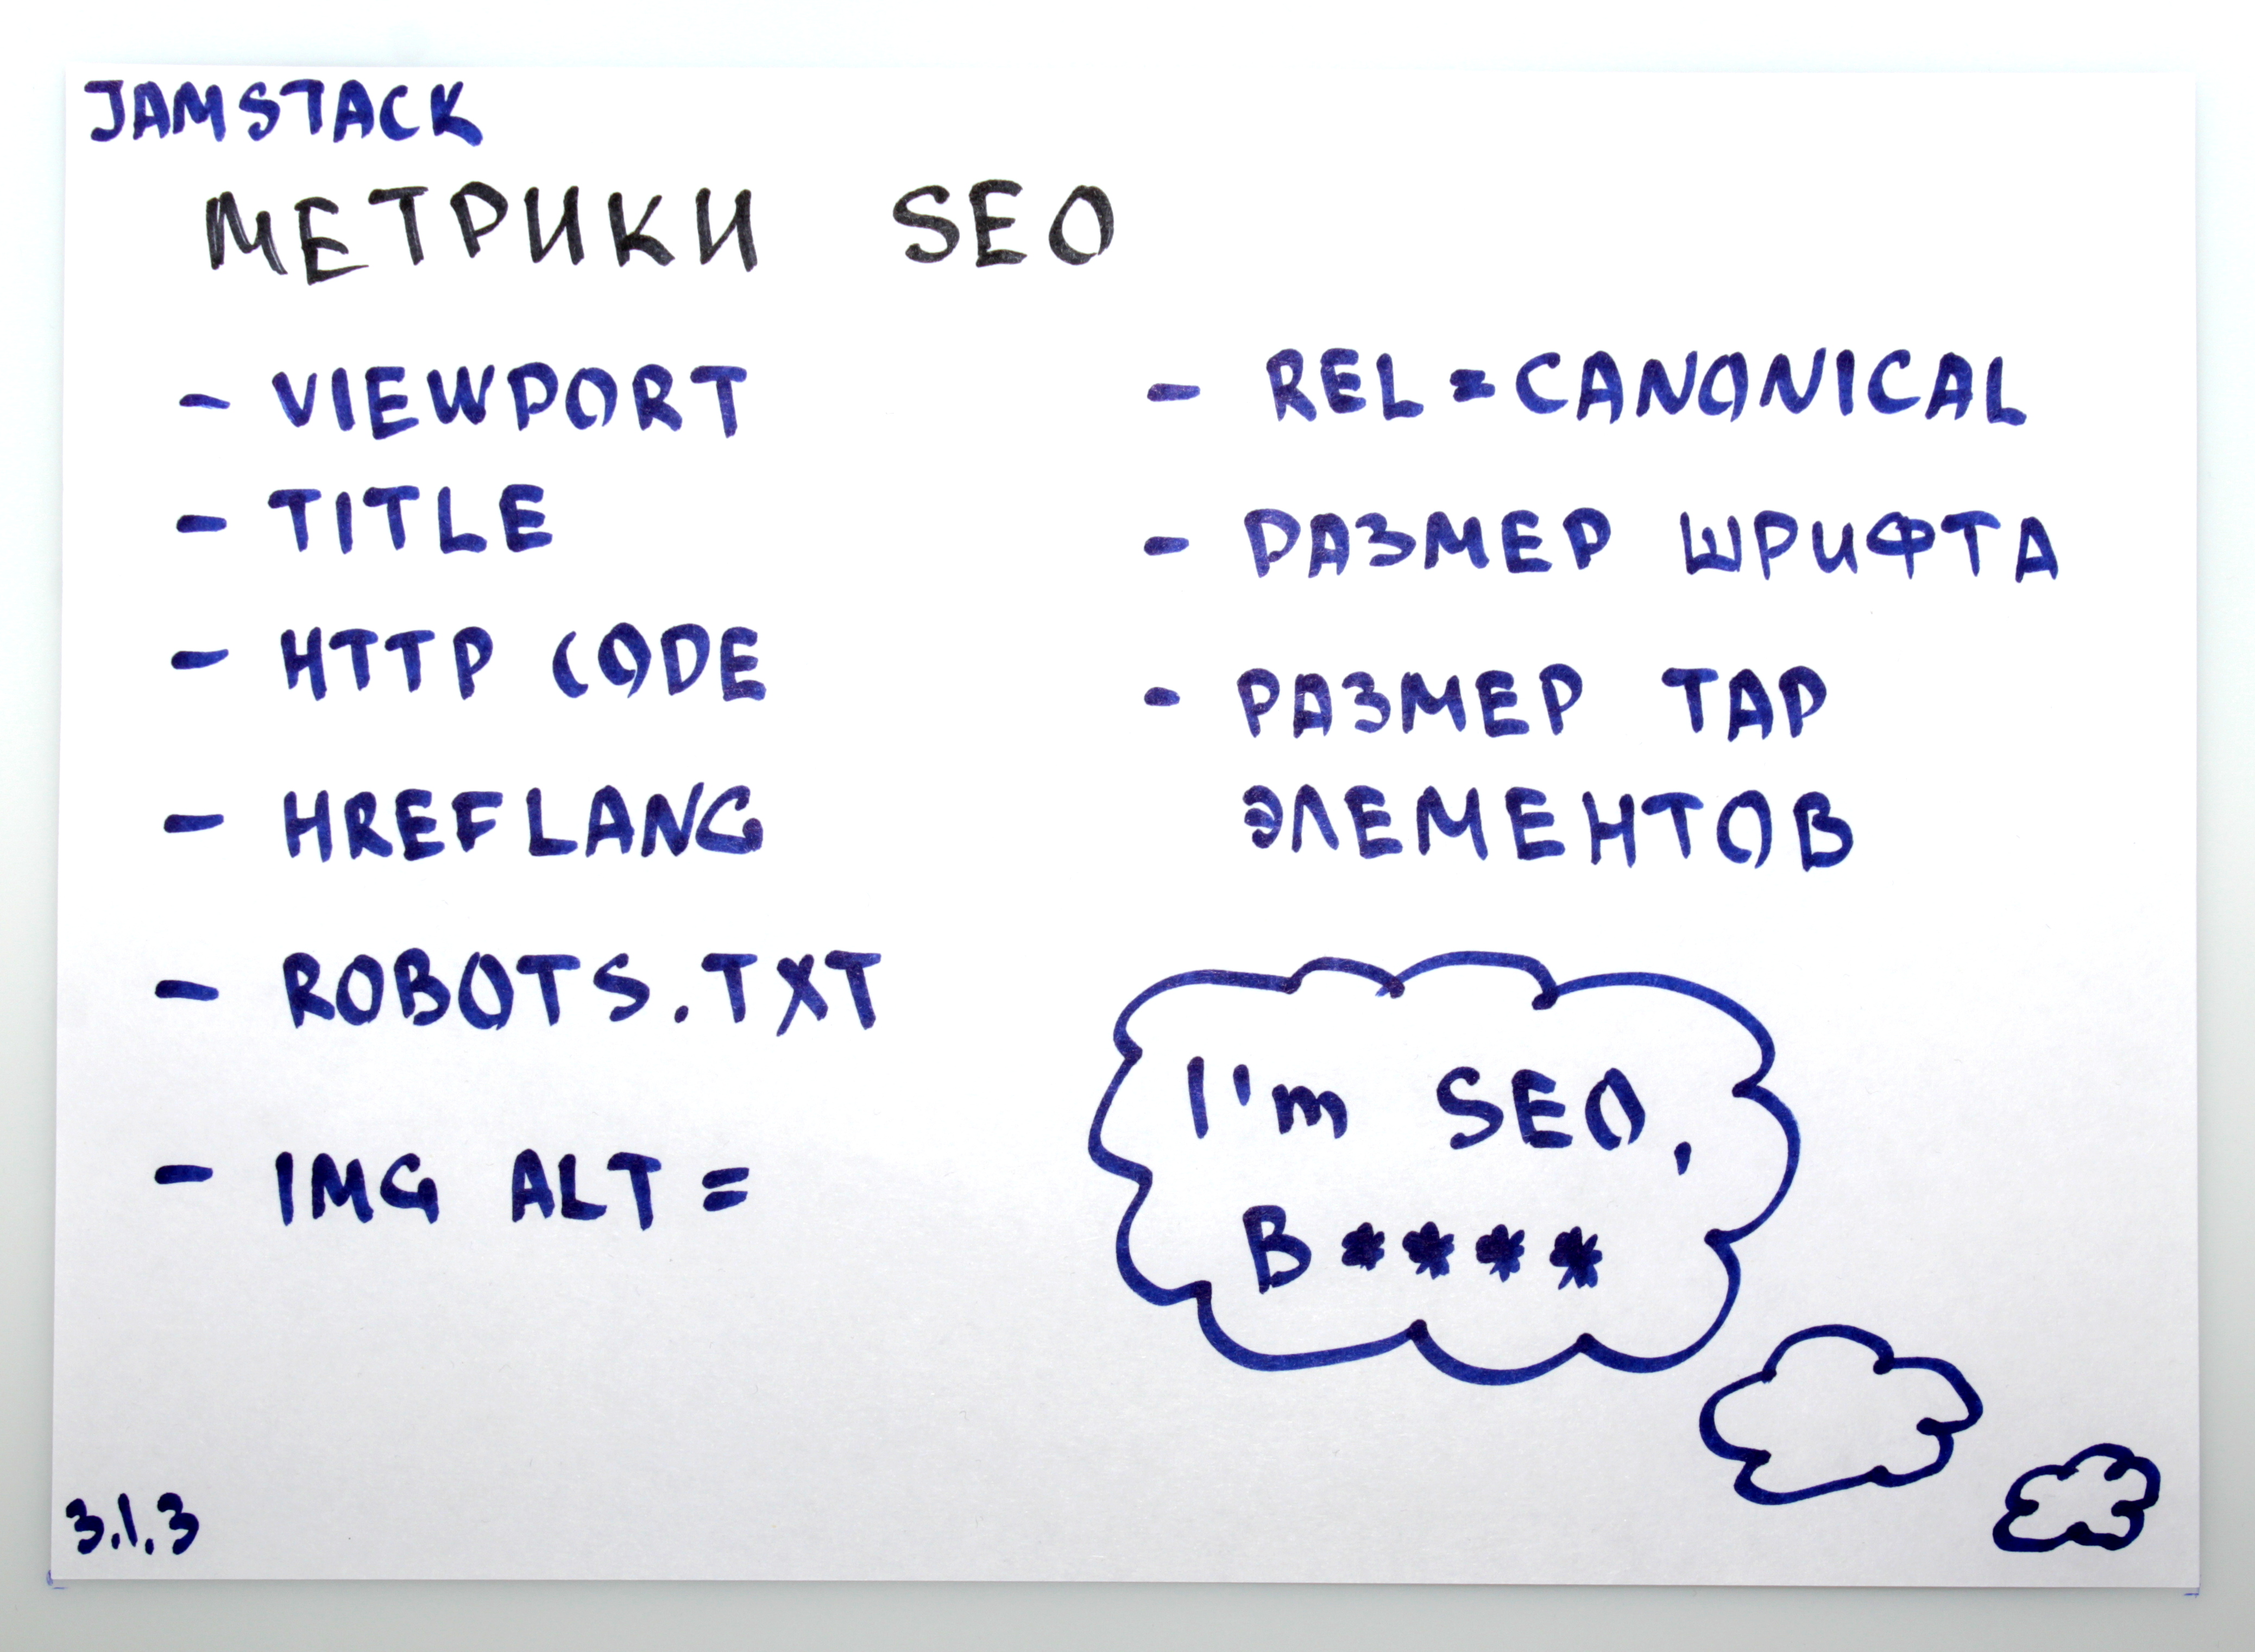 JAMSTACK
МЕТРИКИ SEO
- VIEWPORT
- TITLE
- HTTP CODE
- HREFLANG
- ROBOTS.TXT
- IMG ALT =
- REL=CANONICAL
- РАЗМЕР ШРИФТА
- РАЗМЕР TAP
ЭЛЕМЕНТОВ
I'm SEO,
B****
3.1.3